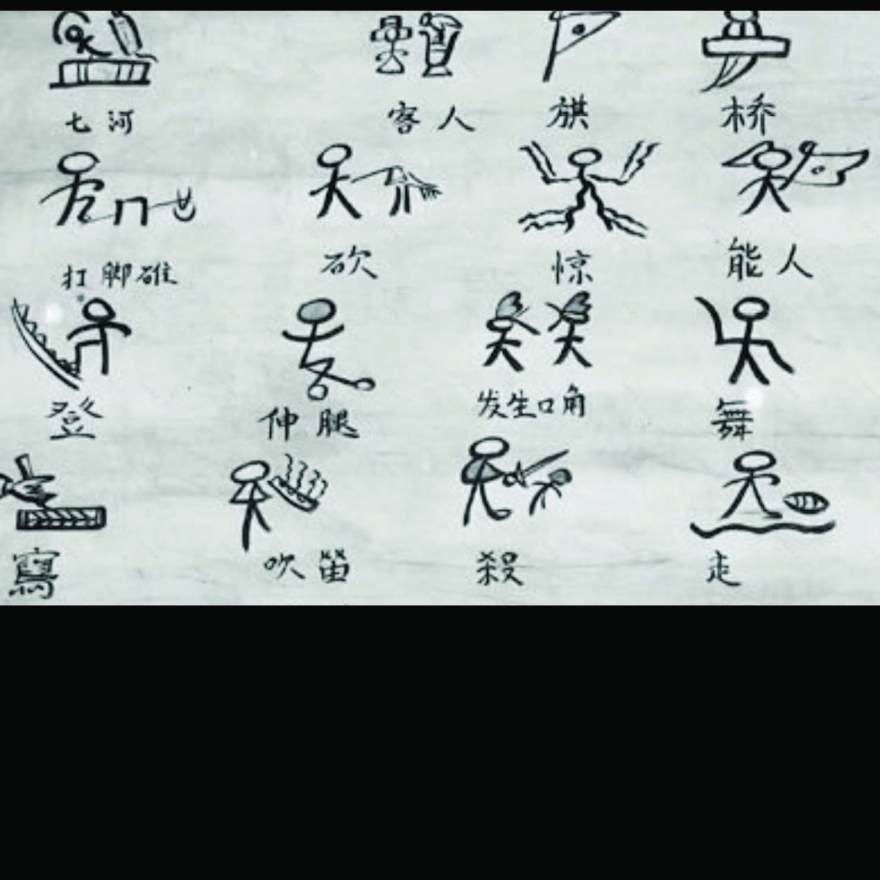 七河 客人 旗 桥
打脚碓 砍 惊 能人
登 伸腿 发生口角 舞
寫 吹笛 殺 走